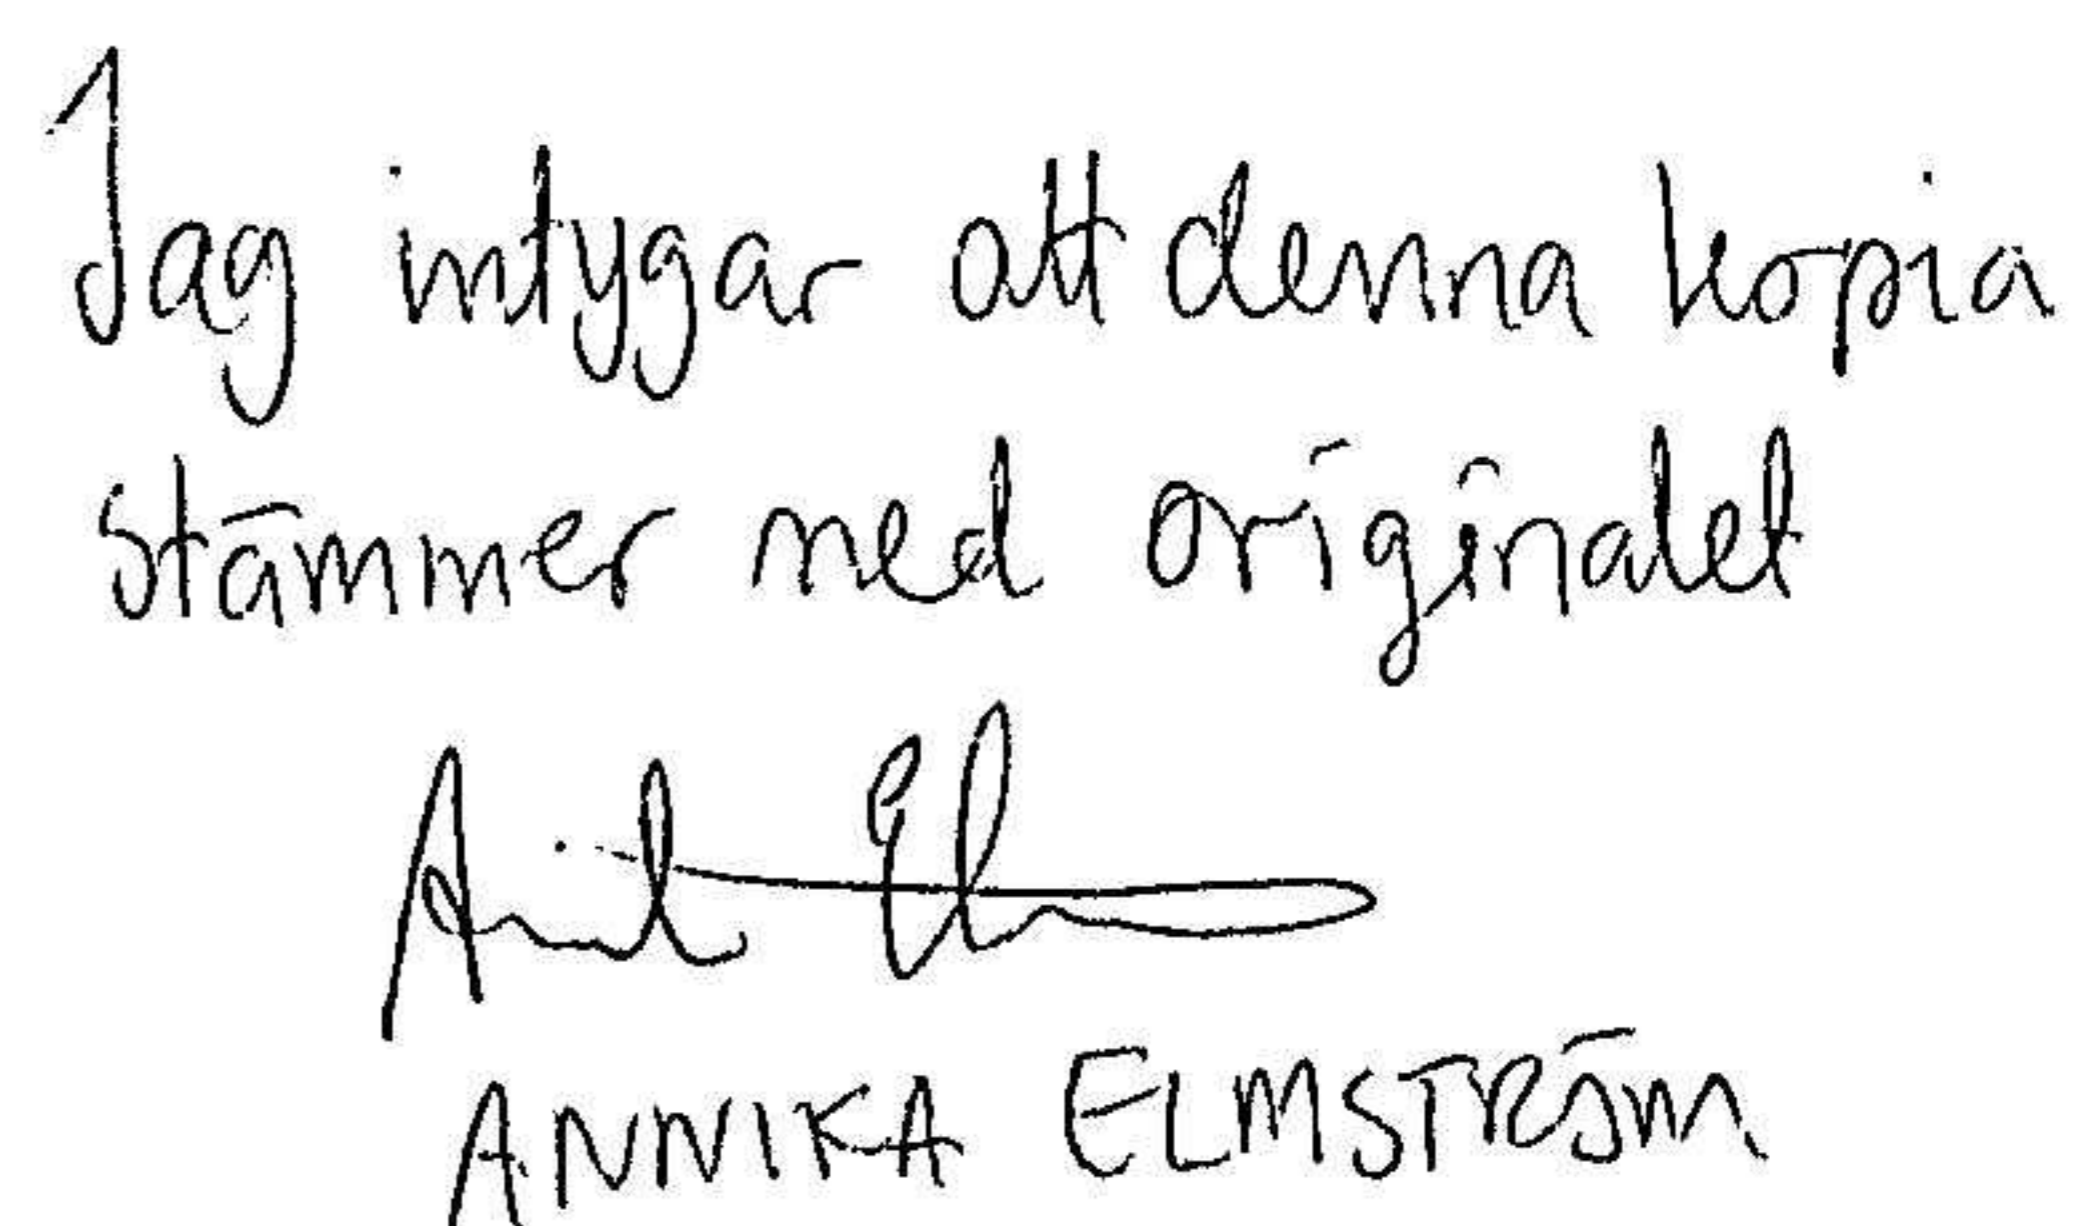 Jag intygar att denna kopia
stämmer med originalet
ANNIKA ELMSTRÖM